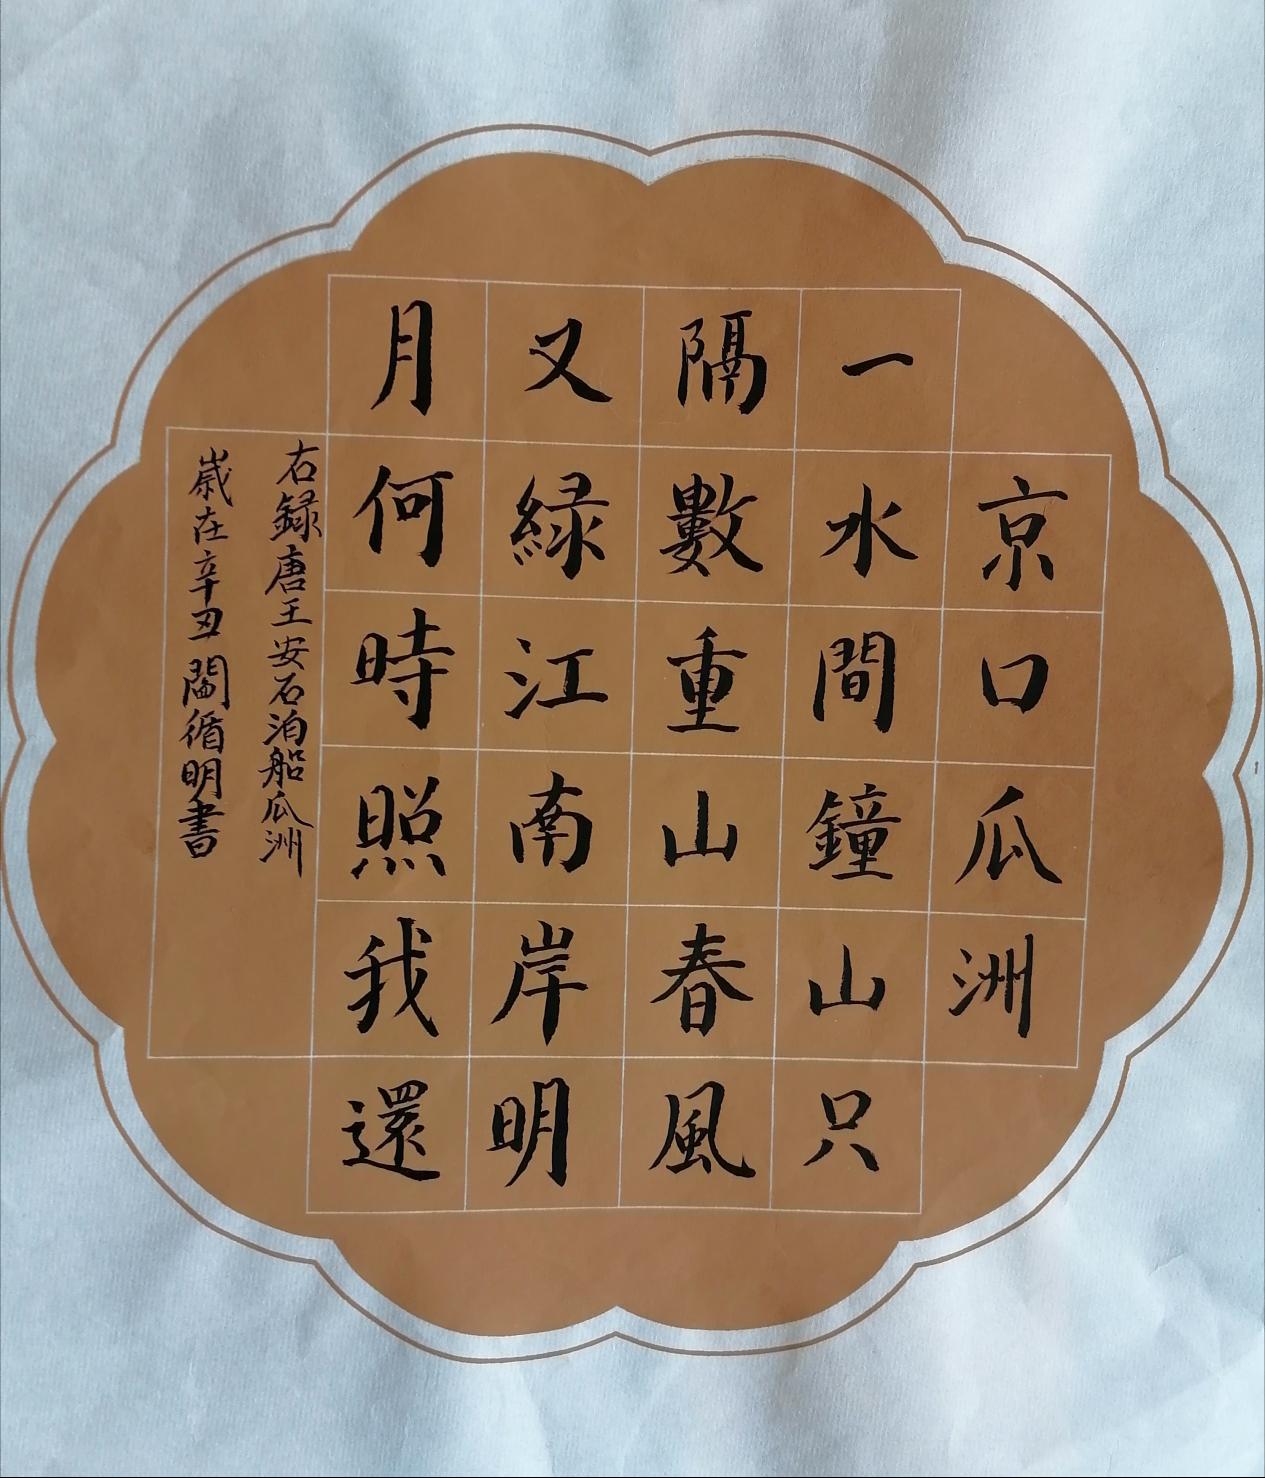 京口瓜洲
一水間鐘山只
隔數重山春風
又緑江南岸明
月何時照我還
右録唐王安石泊船瓜洲
歲在辛丑閻循明書